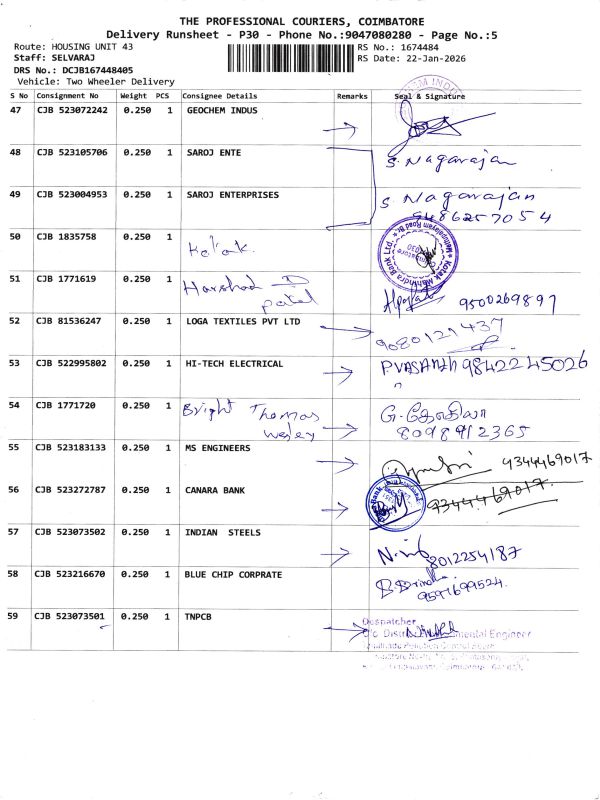 THE PROFESSIONAL COURIERS, COIMBATORE
Delivery Runsheet - P30 - Phone No.:9047080280 - Page No.:5
Route: HOUSING UNIT 43
RS No.: 1674484
Staff: SELVARAJ
RS Date: 22-Jan-2026
DRS No.: DCJB167448405
Vehicle: Two Wheeler Delivery
S No Consignment No Weight PCS Consignee Details Remarks Seal & Signature
47 CJB 523072242 0.250 1 GEOCHEM INDUS
48 CJB 523105706 0.250 1 SAROJ ENTE S. Nagarajan
49 CJB 523004953 0.250 1 SAROJ ENTERPRISES S. Nagarajan
9486257054
50 CJB 1835758 0.250 1 Kotak Kotak Mahindra Bank Ltd.,
51 CJB 1771619 0.250 1 Harshad D
patel 9500269897
52 CJB 81536247 0.250 1 LOGA TEXTILES PVT LTD 9080121437
53 CJB 522995802 0.250 1 HI-TECH ELECTRICAL P.VASANTH 9842245026
54 CJB 1771720 0.250 1 Bright Thomas
Wesley 8098912365
55 CJB 523183133 0.250 1 MS ENGINEERS 9344469017
56 CJB 523272787 0.250 1 CANARA BANK 9344469017
57 CJB 523073502 0.250 1 INDIAN STEELS 8012254187
58 CJB 523216670 0.250 1 BLUE CHIP CORPRATE 9597699524
59 CJB 523073501 0.250 1 TNPCB Despatcher